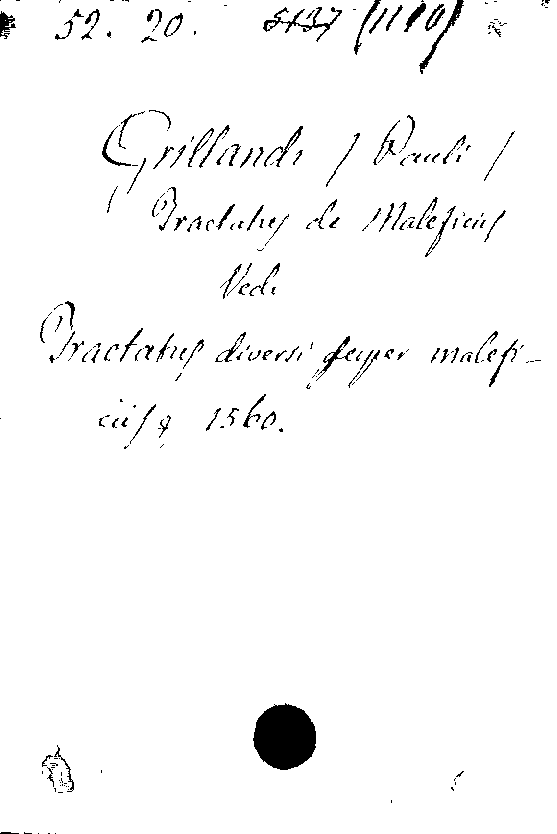 52. 20. 5137 (1110)
Grillandi / Pauli /
Tractatus de Maleficiis
Vedi
Tractatus diversi super malefi-
ciis 1560.